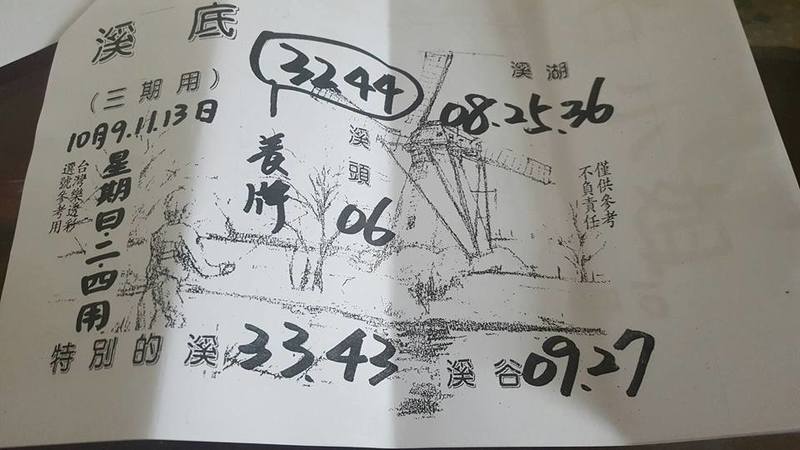 溪底
(三期用)
10月9.11.13日
星期日.二.四用
台灣樂透彩
選號參考用
3244
養牌
溪頭
06
溪湖
08.25.36
僅供參考
不負責任
特別的溪
33.43
溪谷
09.27